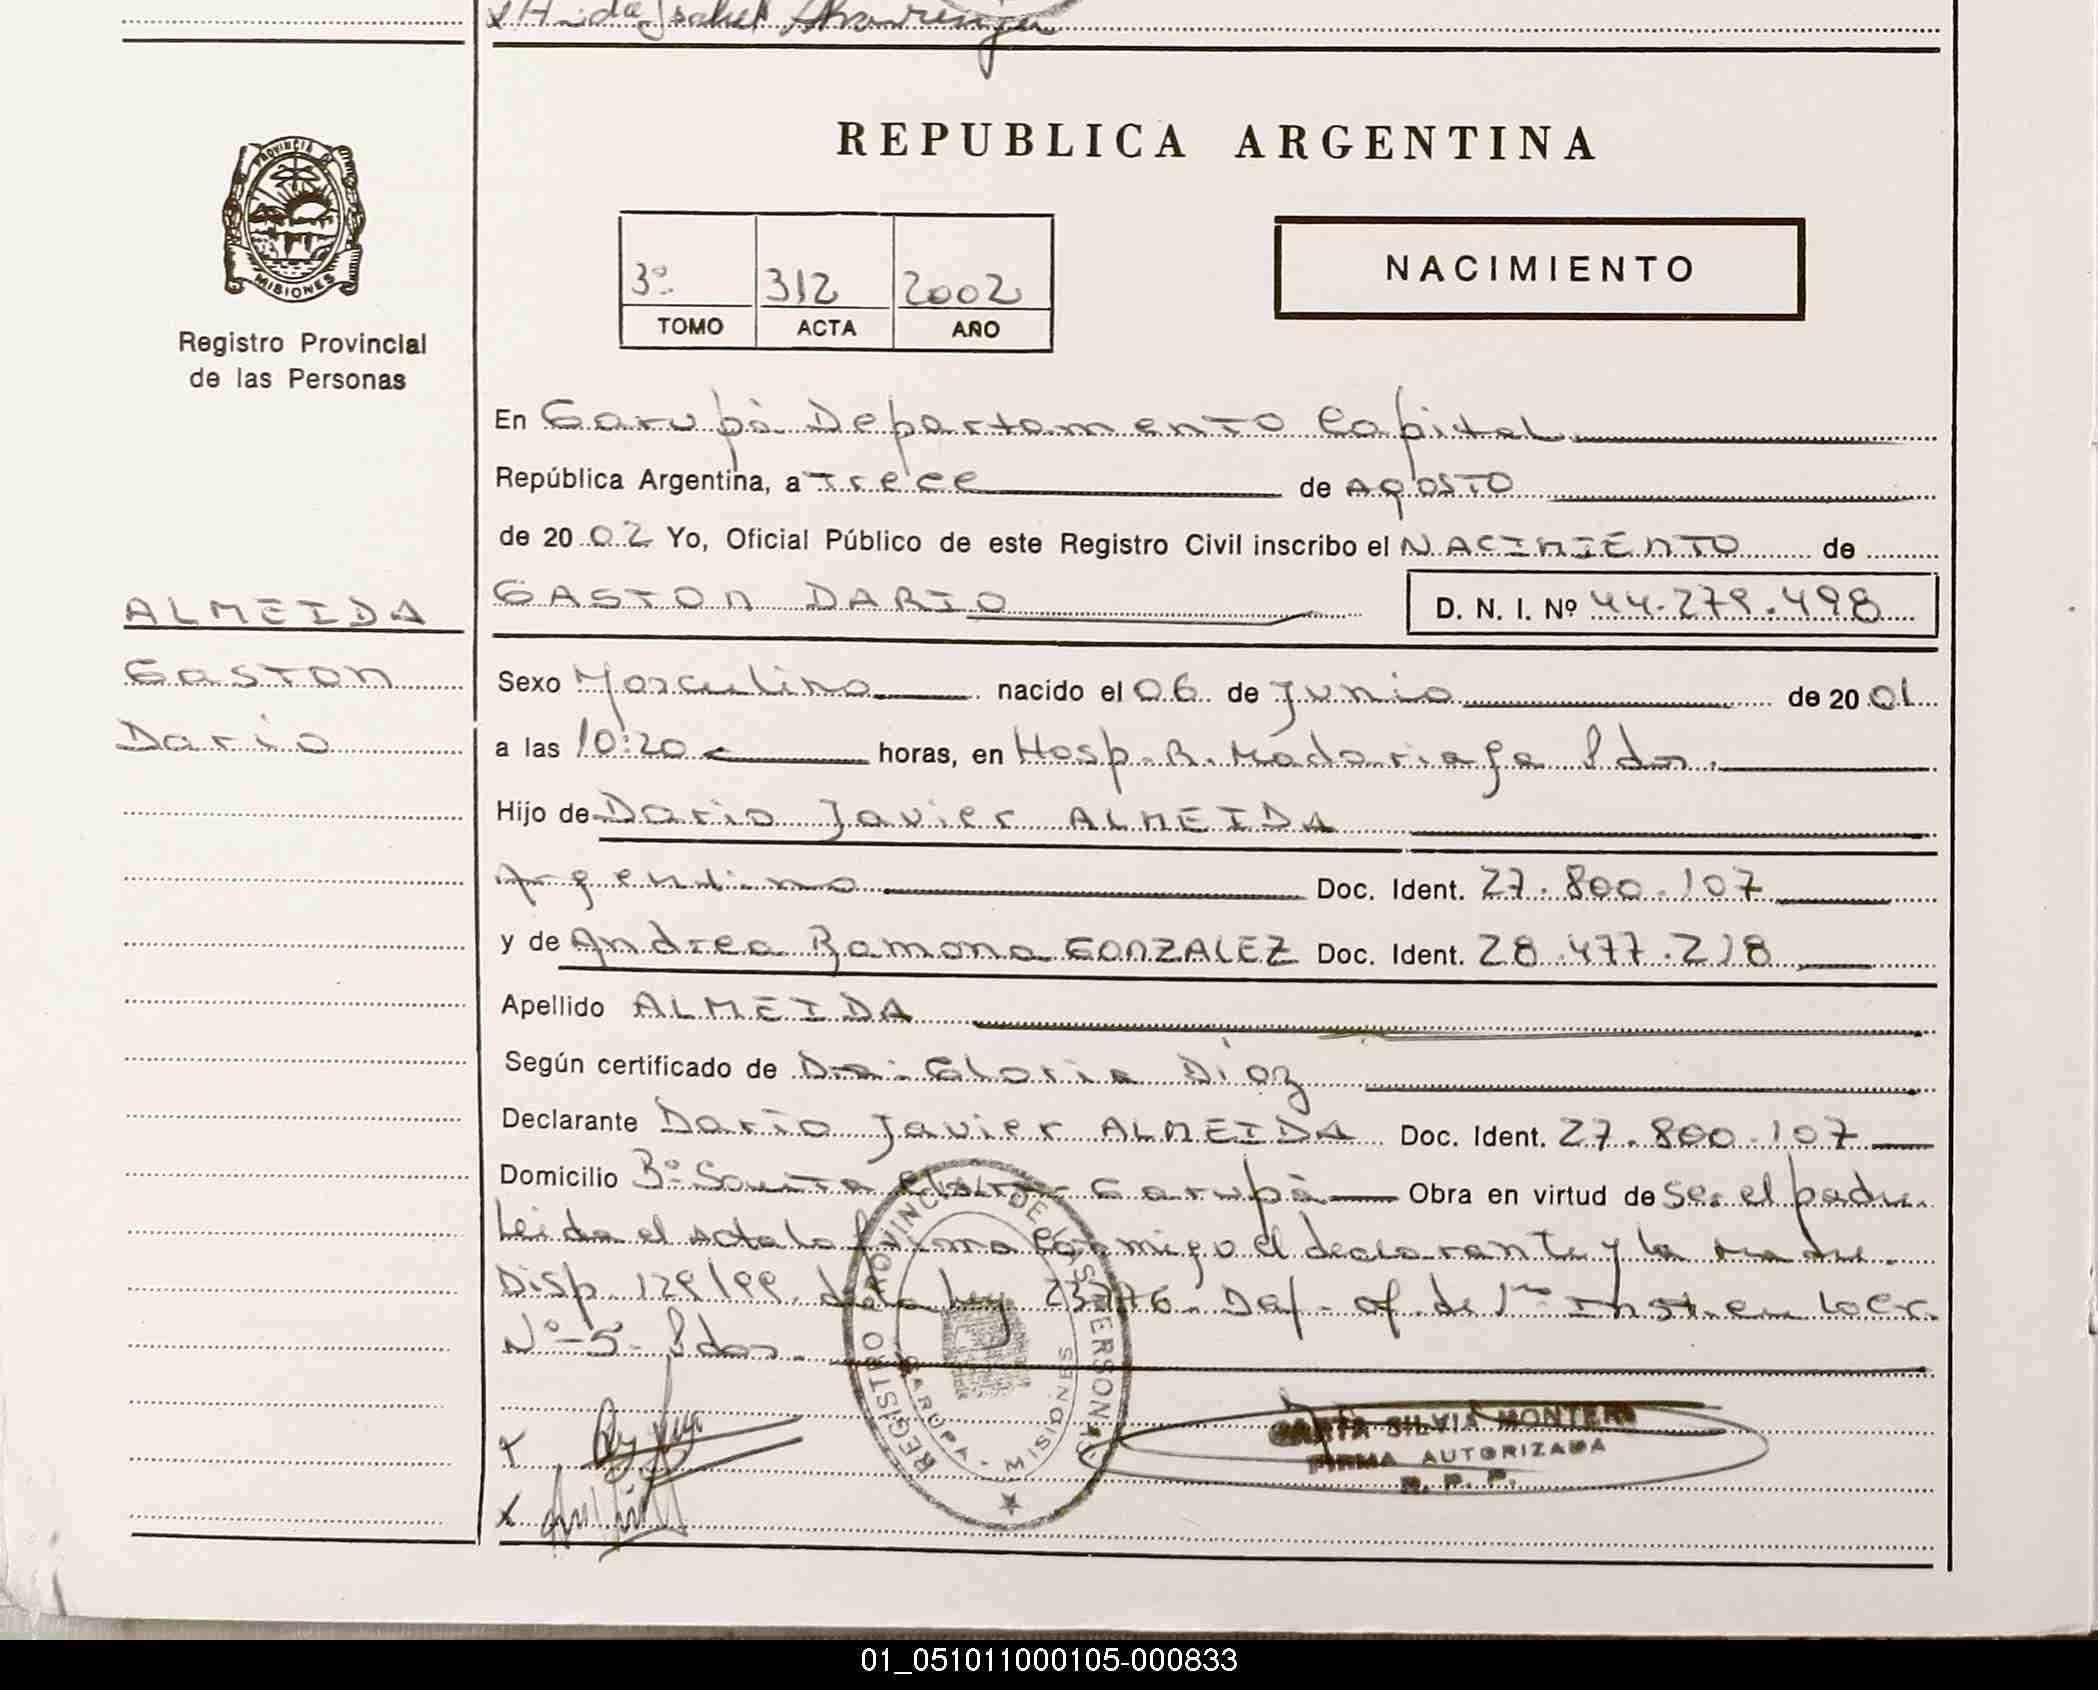 REPUBLICA ARGENTINA
PROVINCIA DE
MISIONES
Registro Provincial
de las Personas
3º 312 2002
TOMO ACTA AÑO
NACIMIENTO
En Garupá Departamento Capital
República Argentina, a Trece de AgOSTO
de 20 02 Yo, Oficial Público de este Registro Civil inscribo el NACIMIENTO de
ALMEIDA
Gaston
Dario
GASTON DARIO D. N. I. Nº 44.279.498
Sexo Masculino nacido el 06 de Junio de 20 01
a las 10:20 horas, en Hosp. R. Madariaga Pdas.
Hijo de Dario Javier ALMEIDA
Argentino Doc. Ident. 27.800.107
y de Andrea Ramona GONZALEZ Doc. Ident. 28.477.218
Apellido ALMEIDA
Según certificado de Dra. Gloria Díaz
Declarante Dario Javier ALMEIDA Doc. Ident. 27.800.107
Domicilio Bº Santa Garupá Obra en virtud de ser el padre.
Leida el acta la firma conmigo el declarante y la madre.
Disp. 129/99. Ley Def. of. de 1ra Inst. en lo
Nº 5 Pdas.
REGISTRO PROVINCIAL DE LAS PERSONAS
GARUPA - MISIONES
SILVIA
FIRMA AUTORIZADA
R. P. P.
01_051011000105-000833